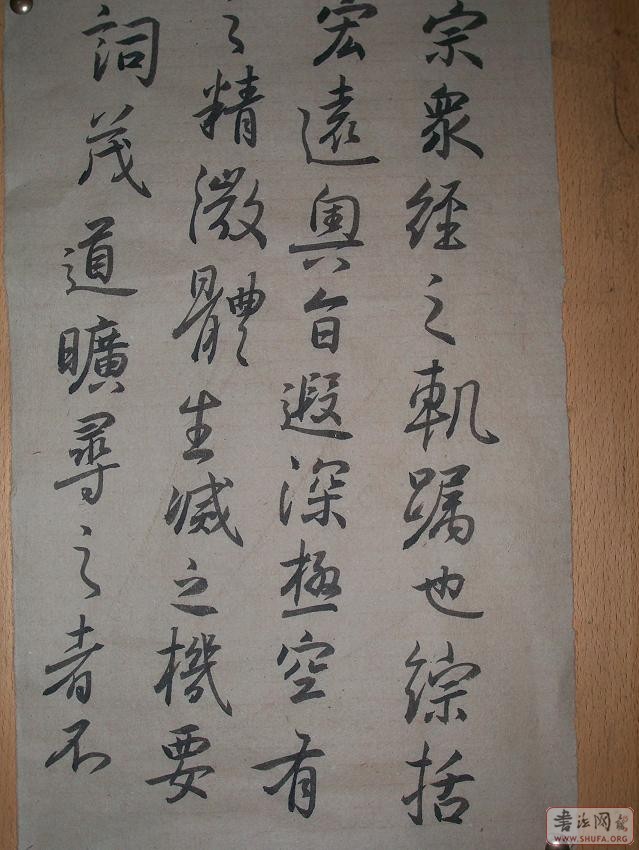 宗眾經之軌躅也綜括
宏遠奧旨遐深極空有
之精微體生滅之機要
詞茂道曠尋之者不
书法网
WWW.SHUFA.ORG